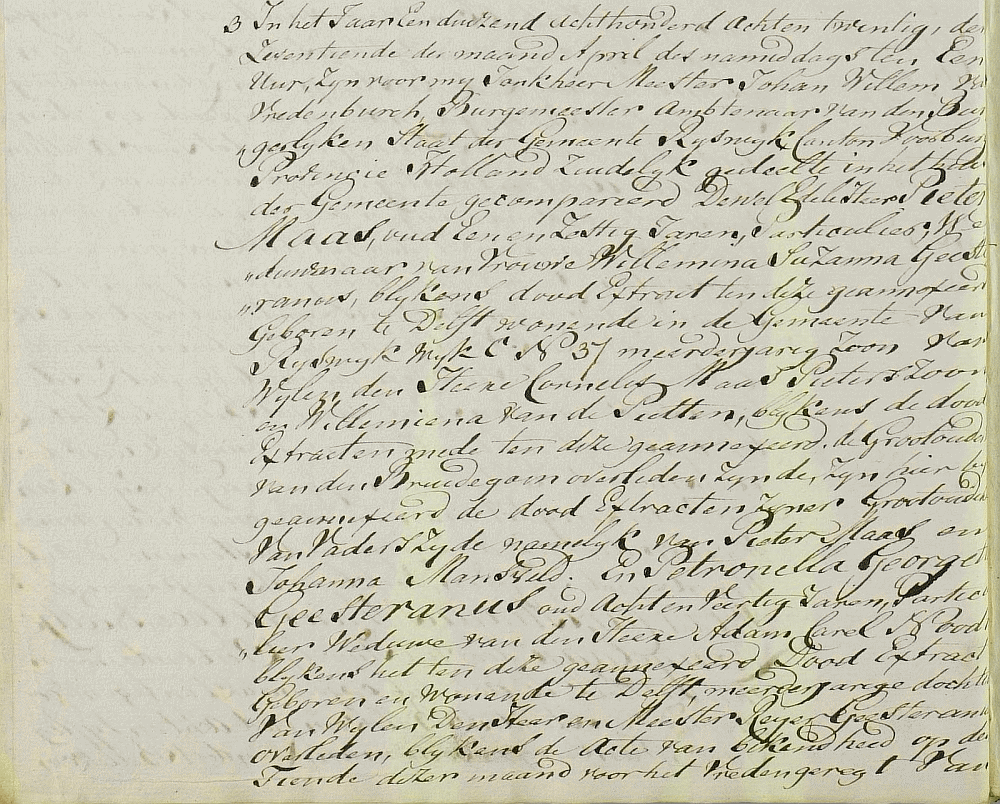 3 In het Jaar Een duizend achthonderd Achten twintig, de
Zeventiende der maand April des namiddags ten Een
Uur, Zyn voor my Jonkheer Meester Johan Willem
Vredenburch, Burgemeester Ambtenaar van den Bur
„gerlyken Staat der Gemeente Ryswyk, Canton Voorbur
Provincie Holland Zuidelyk gedeelte in het
der Gemeente gecompareerd Den Wel Edele Heer Pieter
Maas, oud Een en Zestig Jaren, Particulier, We
„duwenaar van Vrouwe Willemina Suzanna Geest
„ranus, blykens dood Extract ten deze geannexeer
Geboren te Delft wonende in de Gemeente van
Ryswyk Wyk C No 37 meerderjarig Zoon van
Wylen den Heere Cornelis Maas Pieters Zoon
en Willemiena van de Putten, blykens de dood
Extracten mede ten deze geannexeerd. de Grootoude
van den Bruidegom overleden zynde, zyn hier by
geannexeerd de dood Extracten Zyner Grootoude
Van Vaders Zyde namelyk van Pieter Maas en
Johanna Mansveld. En Petronella George
Geesteranus oud Acht en Veertig Jaren, Particu
„lier Weduwe van den Heere Adam Carel
blykens het ten deze geannexeerd Dood Extract
Geboren en Wonende te Delft meerderjarige docht
Van Wylen Den Heer en Meester Reyer Geesteran
overleden, blykens de Acte van bekendheid op de
Tiende dezer maand voor het Vredengeregt Van